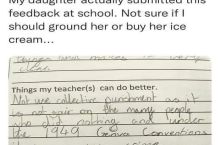 My daughter actually submitted this
feedback at school. Not sure if I
should ground her or buy her ice
cream...
Things my teacher(s) can do better.
Not use collective punishment as it
is not fair on the many people
who did nothing and under
the 1949 Geneva Conventions